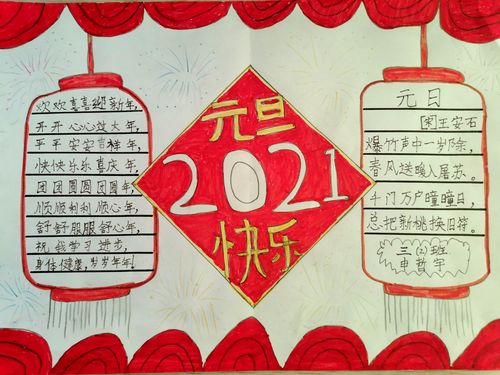 欢欢喜喜迎新年,
开开心心过大年,
平平安安吉祥年,
快快乐乐喜庆年,
团团圆圆团圆年,
顺顺利利顺心年,
舒舒服服舒心年,
祝:我学习进步,
身体健康,岁岁年年!
元旦
2021
快乐
元日
[宋]王安石
爆竹声中一岁除,
春风送暖入屠苏。
千门万户曈曈日,
总把新桃换旧符。
三(2)班
申哲宇